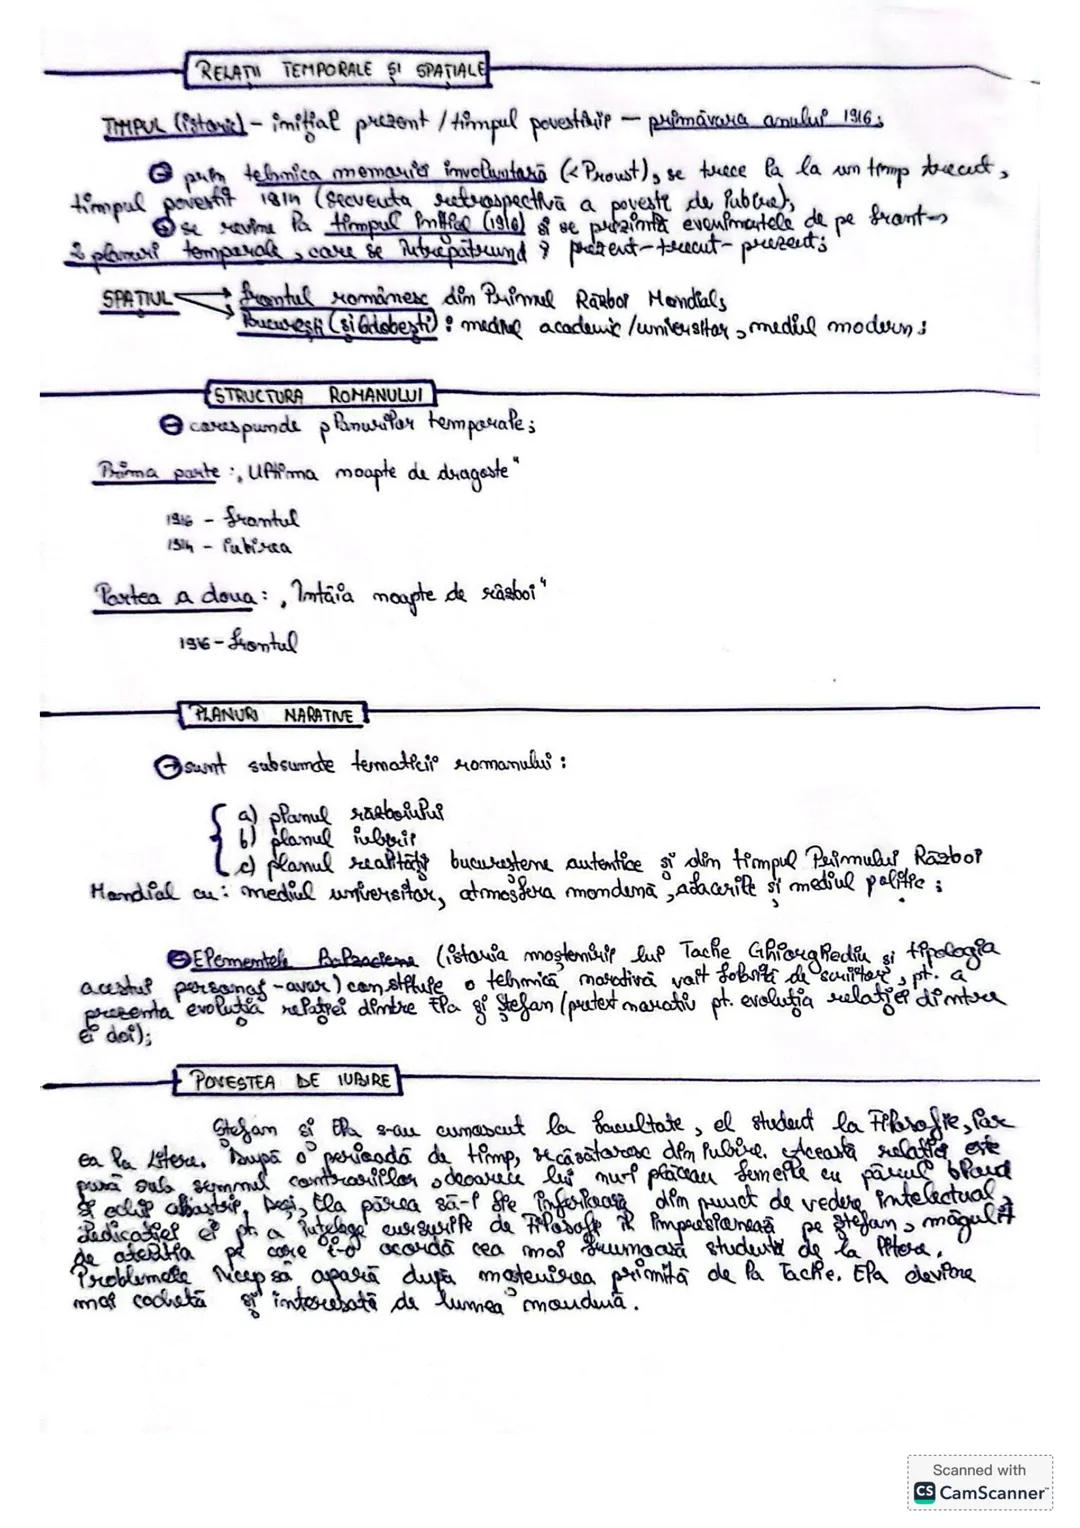 RELAȚII TEMPORALE ȘI SPAȚIALE
TIMPUL (istoric) - inițial prezent / timpul povestirii - primăvara anului 1916;
prin tehnica memoriei involuntară (< Proust), se trece la la un timp trecut,
timpul povestit 1914 (secvența retrospectivă a poveștii de iubire);
se revine la timpul inițial (1916) și se prezintă evenimentele de pe front →
2 planuri temporale, care se întrepătrund: prezent-trecut-prezent;
SPAȚIUL → frontul românesc din Primul Război Mondial;
București (și Odobești): mediul academic / universitar, mediul modern;
STRUCTURA ROMANULUI
corespunde planurilor temporale;
Prima parte: „Ultima noapte de dragoste"
1916 - frontul
1914 - iubirea
Partea a doua: „Întâia noapte de război"
1916 - frontul
PLANURI NARATIVE
sunt subsumate tematicii romanului:
a) planul războiului
b) planul iubirii
c) planul realității bucureștene autentice și din timpul Primului Război
Mondial cu: mediul universitar, atmosfera mondenă, afacerile și mediul politic;
Elementele Balzaciene (istoria moștenirii lui Tache Gheorghidiu și tipologia
acestui personaj - avar) constituie o tehnică narativă voit folosită de scriitor, pt. a
prezenta evoluția relației dintre Ela și Ștefan (pretext narativ pt. evoluția relației dintre
ei doi);
POVESTEA DE IUBIRE
Ștefan și Ela s-au cunoscut la facultate, el student la Filosofie, iar
ea la Litere. După o perioadă de timp, se căsătoresc din iubire. Această relație este
pusă sub semnul contrariilor, deoarece lui nu-i plăceau femeile cu părul blond
și ochii albaștri. Deși, Ela părea să-i fie inferioară din punct de vedere intelectual,
dedicației ei pt. a înțelege cursurile de Filosofie îl impresionează pe Ștefan, măgulit
de atenția pe care i-o acordă cea mai frumoasă studentă de la litere.
Problemele încep să apară după moștenirea primită de la Tache. Ela devine
mai cochetă și interesată de lumea mondenă.
Scanned with
CS CamScanner